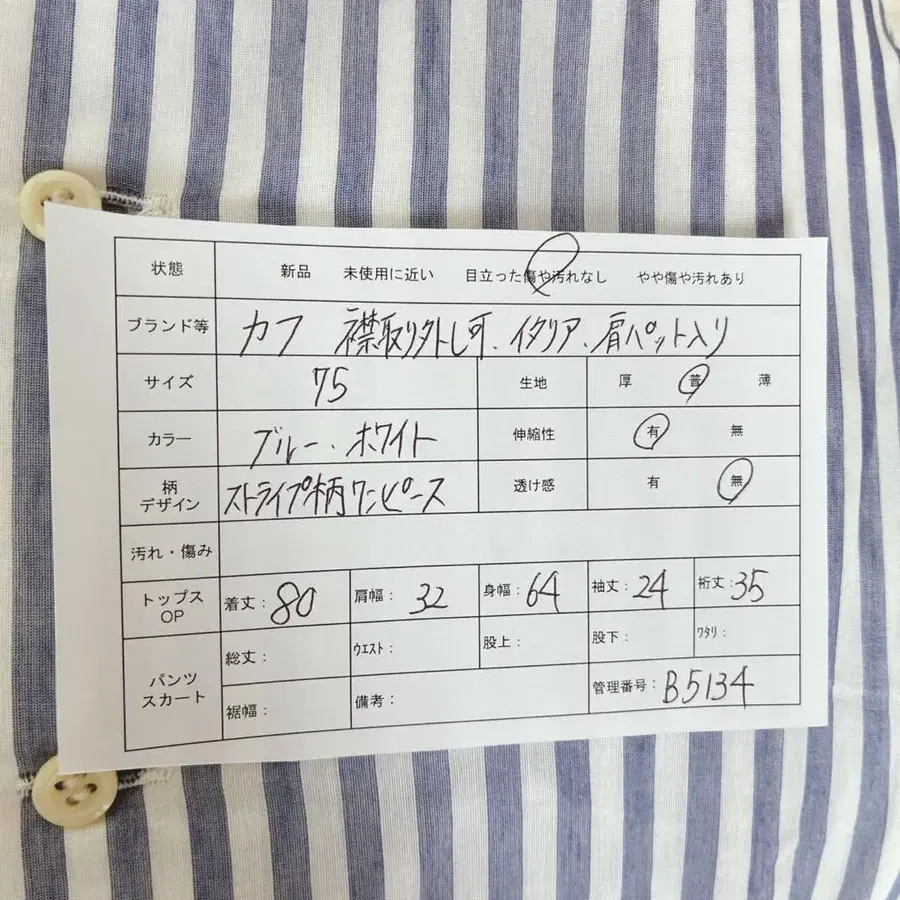 状態 新品 未使用に近い 目立った傷や汚れなし やや傷や汚れあり
ブランド等 カフ 襟取り外し可、イタリア、肩パット入り
サイズ 75 生地 厚 普 薄
カラー ブルー・ホワイト 伸縮性 有 無
柄 デザイン ストライプ柄ワンピース 透け感 有 無
汚れ・傷み
トップス OP 着丈:80 肩幅:32 身幅:64 袖丈:24 裄丈:35
パンツ スカート 総丈: ウエスト: 股上: 股下: ワタリ:
裾幅: 備考: 管理番号:B5134